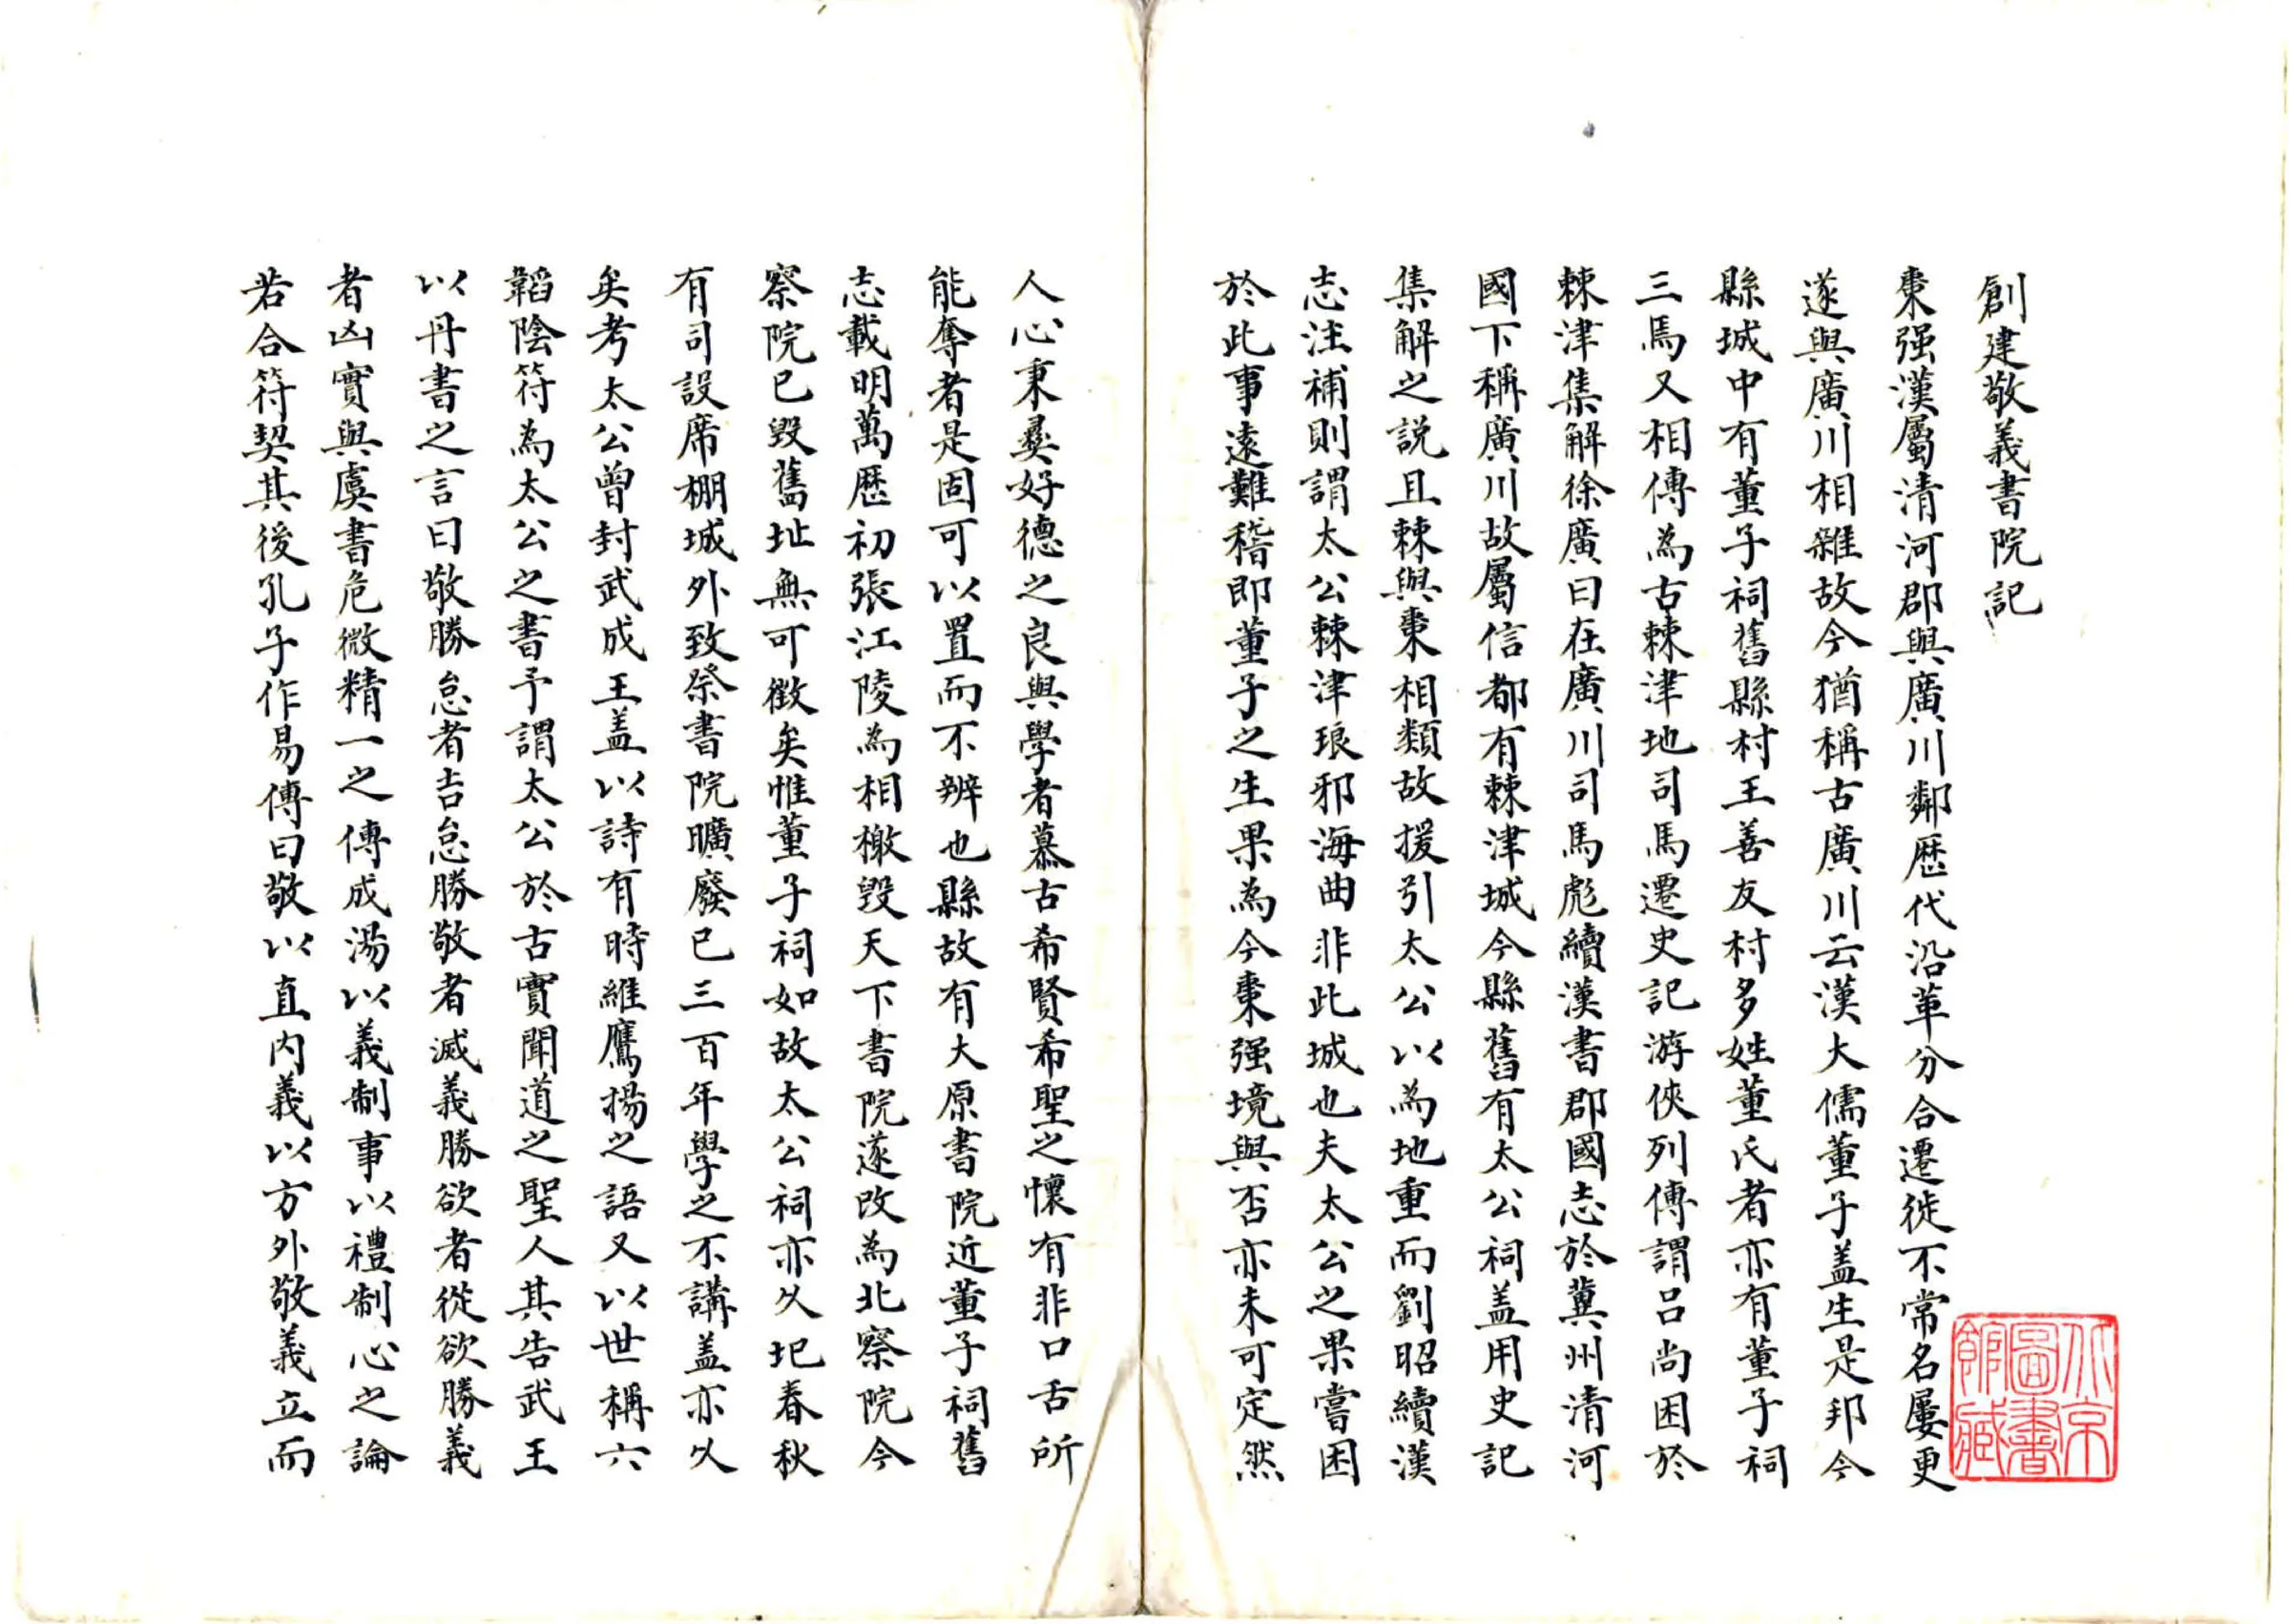 創建敬義書院記
棗强漢屬清河郡與廣川鄰歷代沿革分合遷徙不常名屢更
遂與廣川相雜故今猶稱古廣川云漢大儒董子盖生是邦今
縣城中有董子祠舊縣村王善友村多姓董氏者亦有董子祠
三焉又相傳為古棘津地司馬遷史記游俠列傳謂吕尚困於
棘津集解徐廣曰在廣川司馬彪續漢書郡國志於冀州清河
國下稱廣川故屬信都有棘津城今縣舊有太公祠盖用史記
集解之説且棘與棗相類故援引太公以為地重而劉昭續漢
志注補則謂太公棘津琅邪海曲非此城也夫太公之果嘗困
於此事遠難稽即董子之生果為今棗强境與否亦未可定然
人心秉彝好德之良與學者慕古希賢希聖之懷有非口舌所
能奪者是固可以置而不辨也縣故有大原書院近董子祠舊
志載明萬歷初張江陵為相檄毀天下書院遂改為北察院今
察院已毀舊址無可徵矣惟董子祠如故太公祠亦久圯春秋
有司設席棚城外致祭書院曠廢已三百年學之不講盖亦久
矣考太公曾封武成王盖以詩有時維鷹揚之語又以世稱六
韜陰符為太公之書予謂太公於古實聞道之聖人其告武王
以丹書之言曰敬勝怠者吉怠勝敬者滅義勝欲者從欲勝義
者凶實與虞書危微精一之傳成湯以義制事以禮制心之論
若合符契其後孔子作易傳曰敬以直内義以方外敬義立而
北京圖書館藏